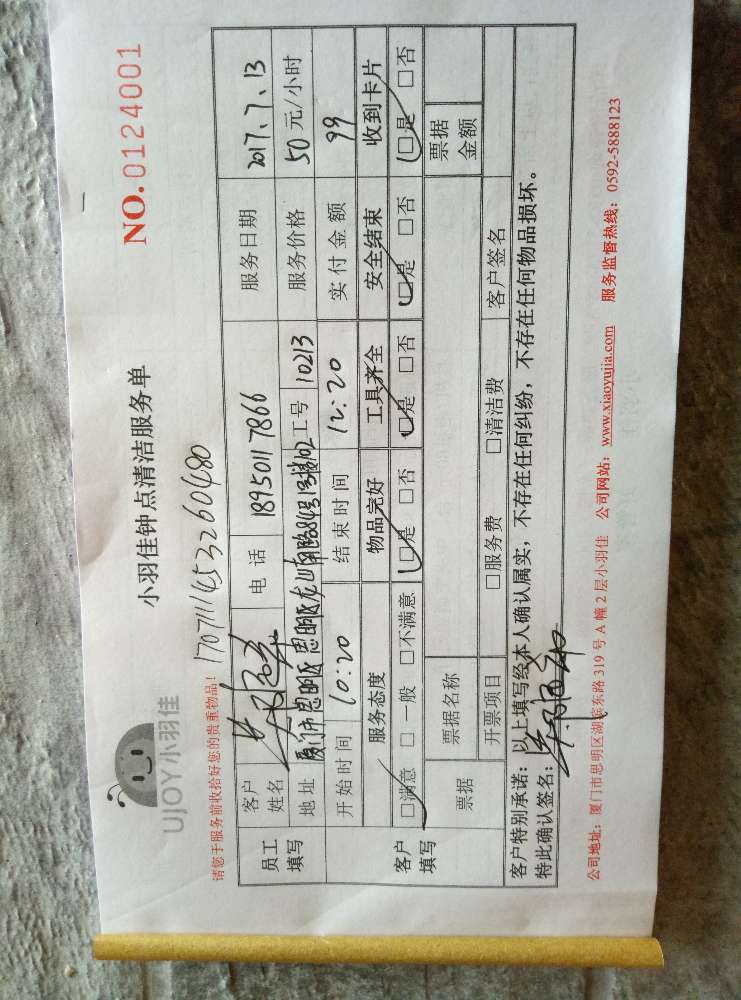 UJOY小羽佳
小羽佳钟点清洁服务单
NO.0124001
请您于服务前收拾好您的贵重物品!
170711453260480
员工填写
客户姓名
电 话 18950117866
服务日期 2017.7.13
地 址 厦门市思明区
工号 10213
服务价格 50 元/小时
开始时间 10:20
结束时间 12:20
实付金额 99
客户填写
服务态度 物品完好 工具齐全 安全结束 收到卡片
□满意 □一般 □不满意 □是 □否 □是 □否 □是 □否 □是 □否
票据
票据名称
票据金额
开票项目 □服务费 □清洁费 客户签名
客户特别承诺:以上填写经本人确认属实,不存在任何纠纷,不存在任何物品损坏。
特此确认签名:
公司地址:厦门市思明区湖滨东路 319 号 A 幢 2 层小羽佳 公司网站:www.xiaoyujia.com 服务监督热线:0592-5888123